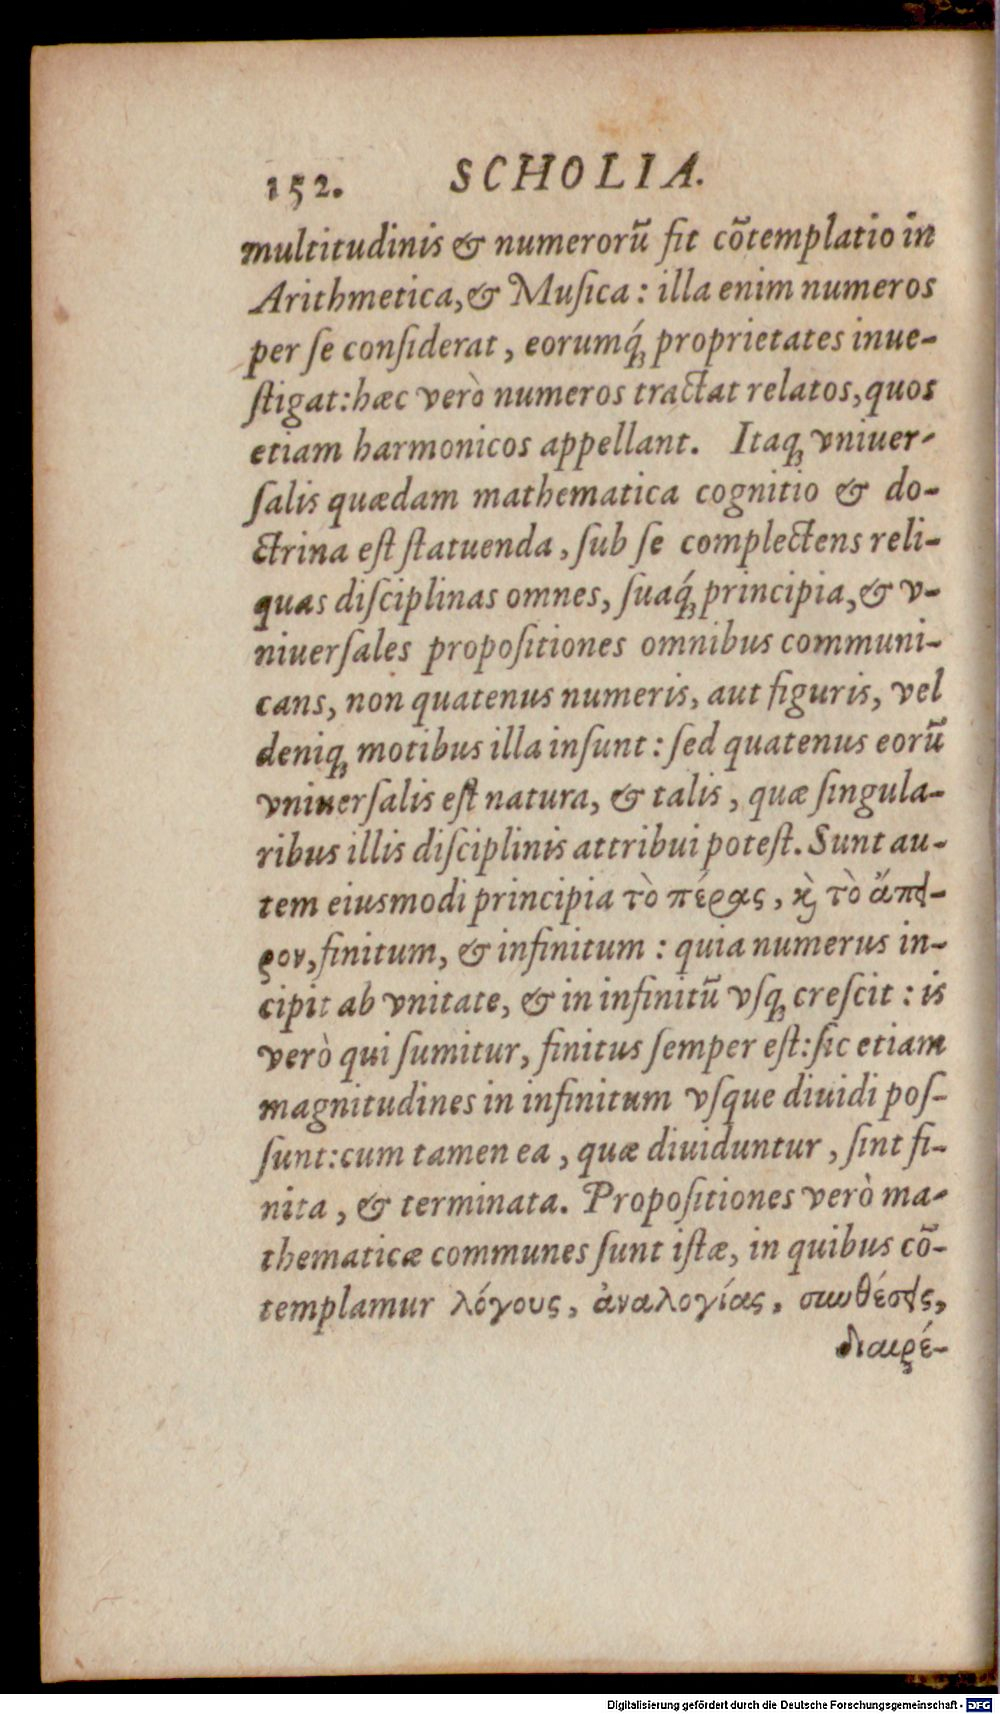 152. SCHOLIA.
multitudinis & numerorũ fit cõtemplatio in
Arithmetica, & Muſica : illa enim numeros
per ſe conſiderat , eorumq́ꝫ proprietates inue-
ſtigat: hæc verò numeros tractat relatos, quos
etiam harmonicos appellant. Itaqꝫ vniuer-
ſalis quædam mathematica cognitio & do-
ctrina eſt ſtatuenda , ſub ſe complectens reli-
quas diſciplinas omnes, ſuaq́ꝫ principia, & v-
niuerſales propoſitiones omnibus communi-
cans, non quatenus numeris, aut figuris, vel
deniqꝫ motibus illa inſunt : ſed quatenus eorũ
vniuerſalis eſt natura, & talis , quæ ſingula-
ribus illis diſciplinis attribui poteſt. Sunt au-
tem eiusmodi principia τὸ πέρας , ϗ̀ τὸ ἄπει-
ρον, finitum, & infinitum : quia numerus in-
cipit ab vnitate, & in infinitũ vſqꝫ creſcit : is
verò qui ſumitur, finitus ſemper eſt: ſic etiam
magnitudines in infinitum vſque diuidi poſ-
ſunt: cum tamen ea , quæ diuiduntur , ſint fi-
nita , & terminata. Propoſitiones verò ma-
thematicæ communes ſunt iſtæ, in quibus cõ-
templamur λόγους , ἀναλογίας , συνθέσεις,
διαιρέ-
Digitalisierung gefördert durch die Deutsche Forschungsgemeinschaft - DFG